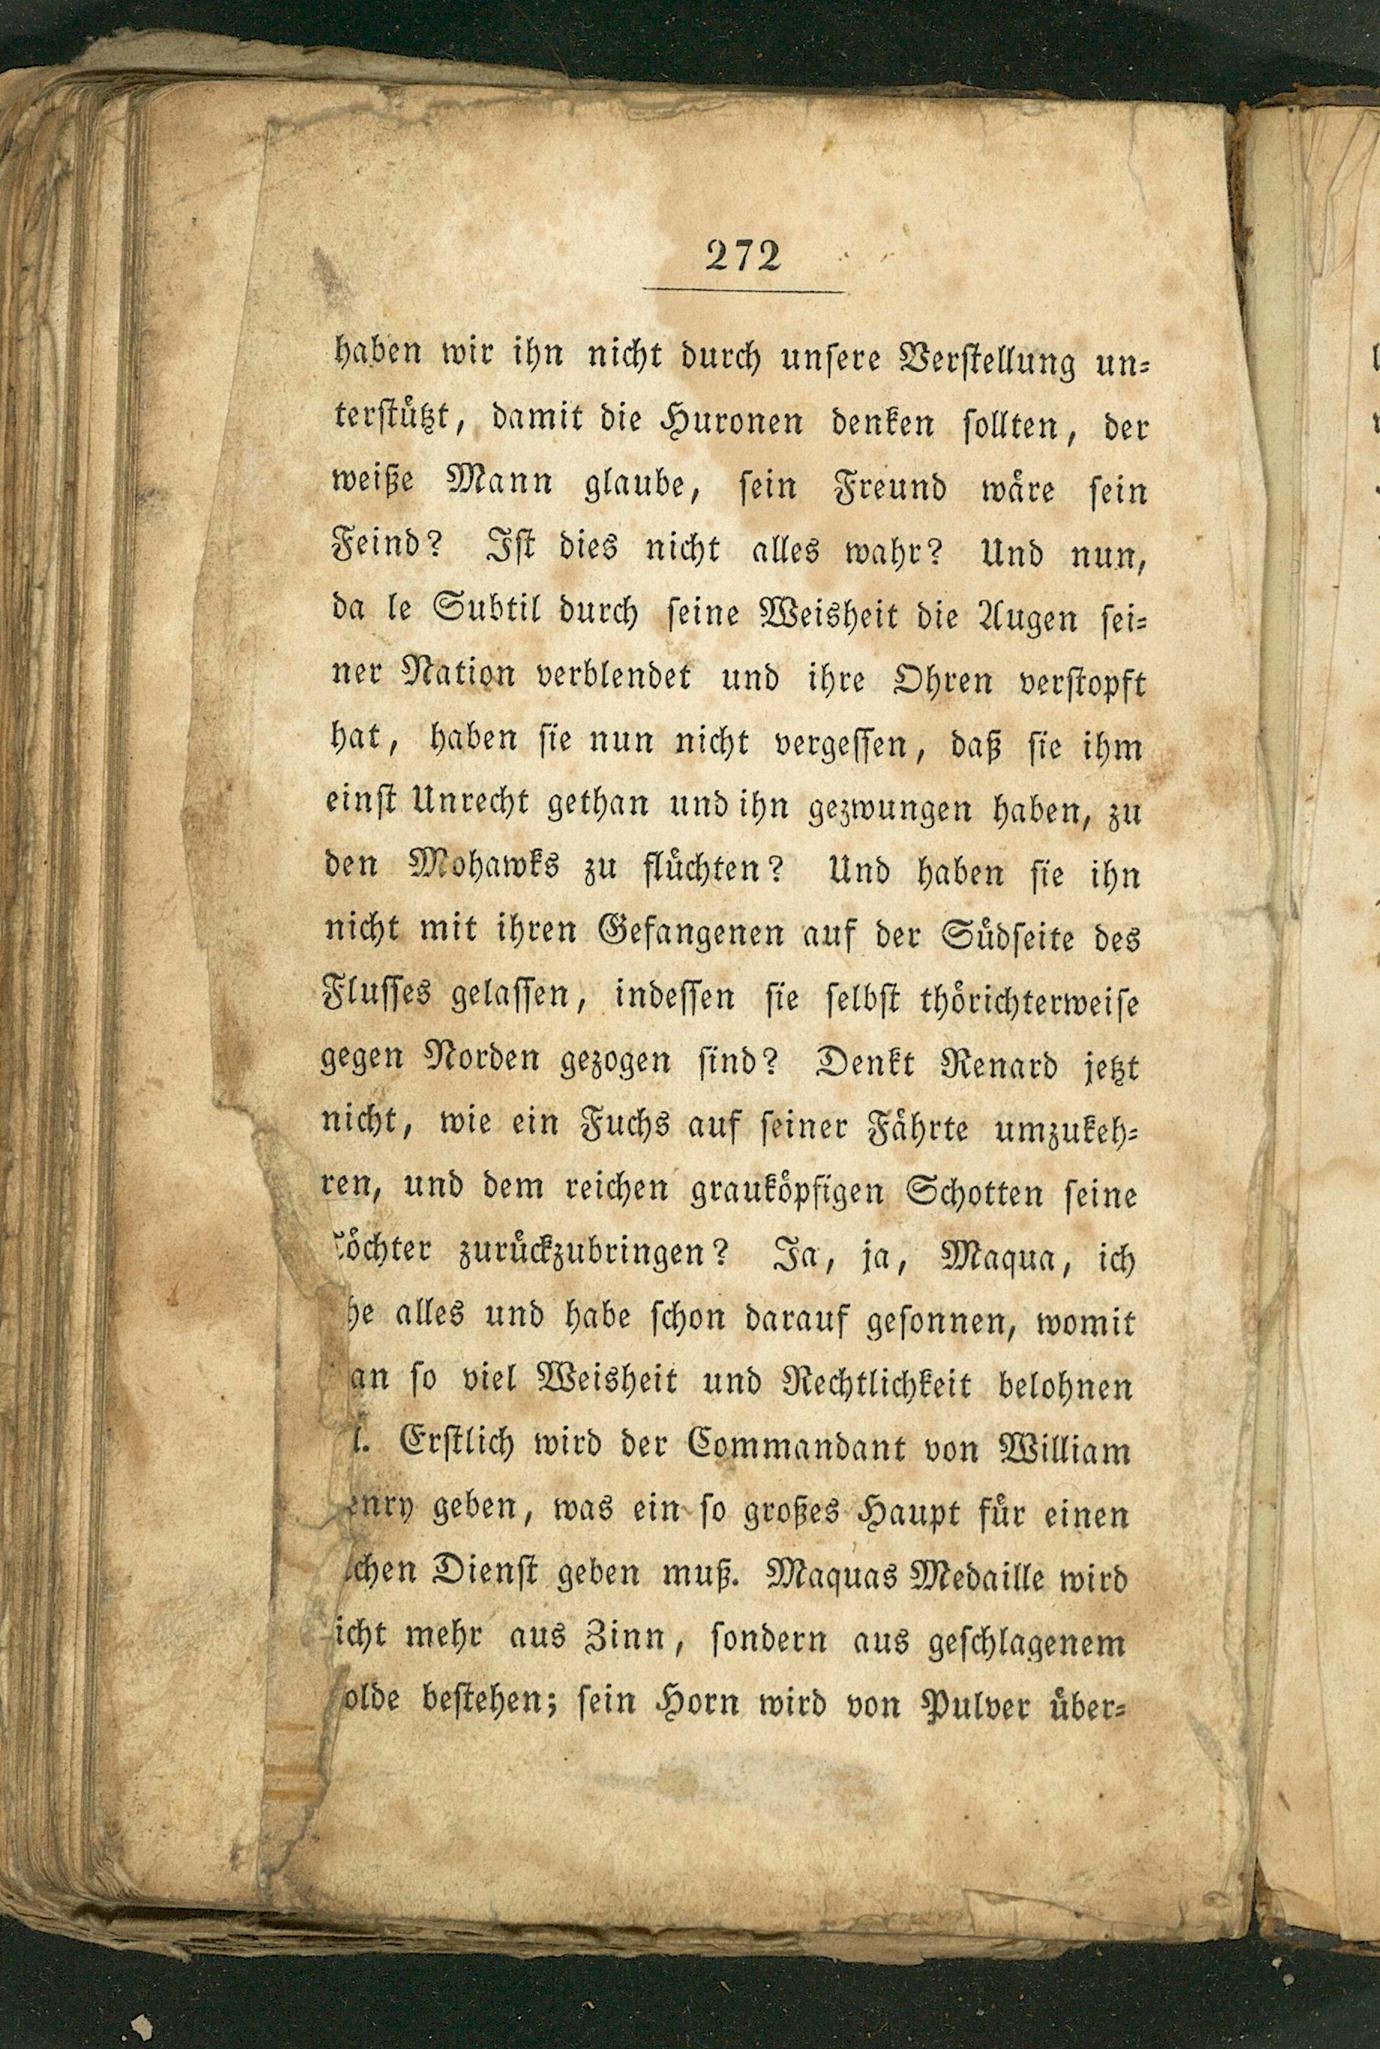 272
haben wir ihn nicht durch unsere Verstellung un-
terstützt, damit die Huronen denken sollten, der
weiße Mann glaube, sein Freund wäre sein
Feind? Ist dies nicht alles wahr? Und nun,
da le Subtil durch seine Weisheit die Augen sei-
ner Nation verblendet und ihre Ohren verstopft
hat, haben sie nun nicht vergessen, daß sie ihm
einst Unrecht gethan und ihn gezwungen haben, zu
den Mohawks zu flüchten? Und haben sie ihn
nicht mit ihren Gefangenen auf der Südseite des
Flusses gelassen, indessen sie selbst thörichterweise
gegen Norden gezogen sind? Denkt Renard jetzt
nicht, wie ein Fuchs auf seiner Fährte umzukeh-
ren, und dem reichen grauköpfigen Schotten seine
Töchter zurückzubringen? Ja, ja, Maqua, ich
he alles und habe schon darauf gesonnen, womit
an so viel Weisheit und Rechtlichkeit belohnen
l. Erstlich wird der Commandant von William
enry geben, was ein so großes Haupt für einen
lchen Dienst geben muß. Maquas Medaille wird
icht mehr aus Zinn, sondern aus geschlagenem
olde bestehen; sein Horn wird von Pulver über-